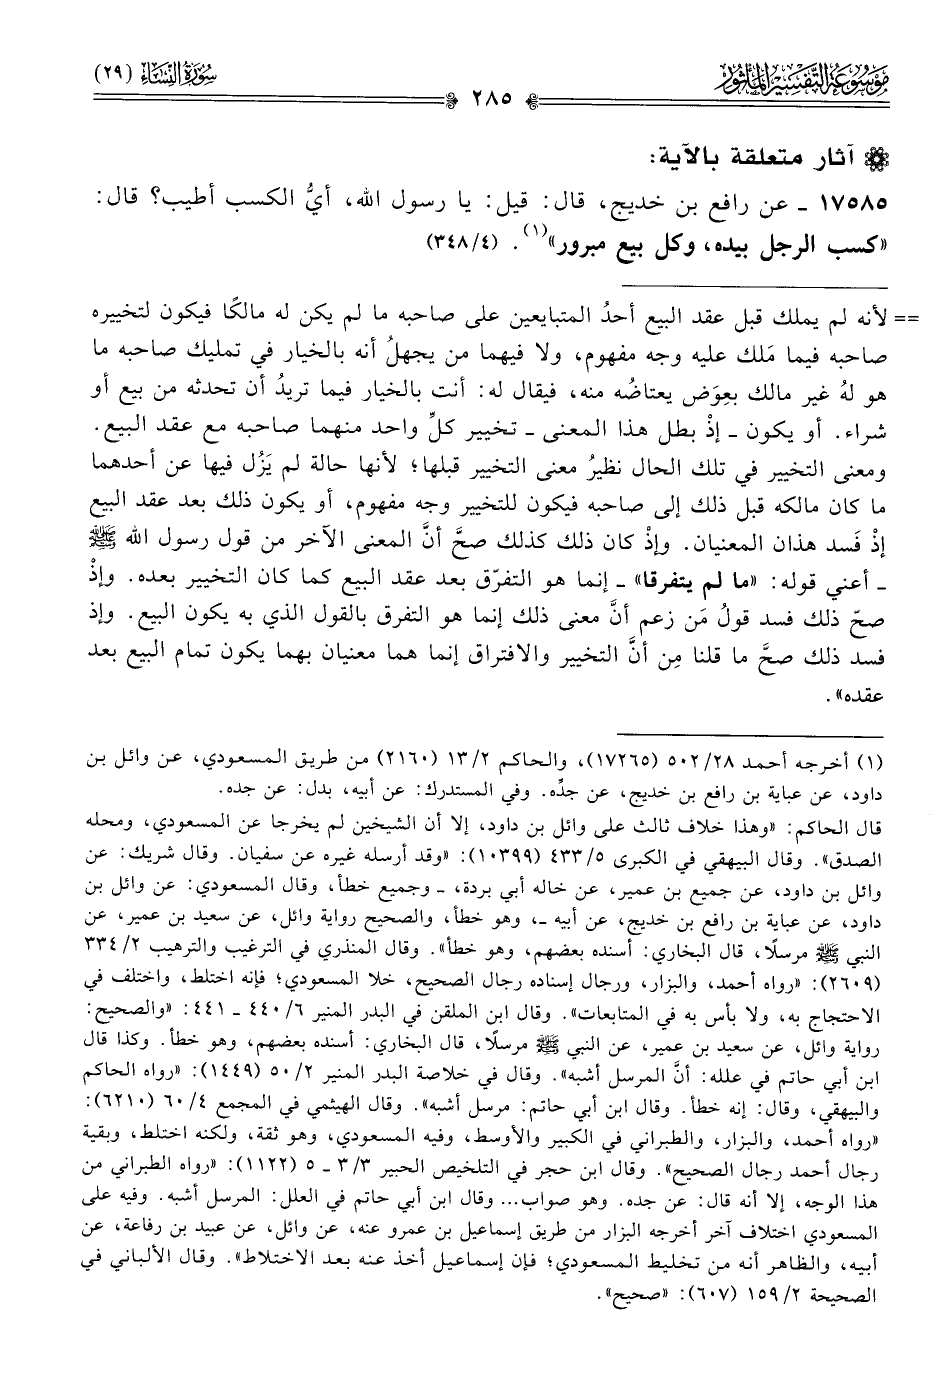 موسوعة التفسير المأثور
سورة النساء (٢٩)
٢٨٥
آثار متعلقة بالآية:
١٧٥٨٥ ـ عن رافع بن خديج، قال: قيل: يا رسول الله، أيُّ الكسب أطيب؟ قال:
«كسب الرجل بيده، وكل بيع مبرور»(١). (٣٤٨/٤)
== لأنه لم يملك قبل عقد البيع أحدُ المتبايعين على صاحبه ما لم يكن له مالكًا فيكون لتخييره
صاحبه فيما مَلك عليه وجه مفهوم، ولا فيهما من يجهلُ أنه بالخيار في تمليك صاحبه ما
هو لهُ غير مالك بعِوَض يعتاضُه منه، فيقال له: أنت بالخيار فيما تريدُ أن تحدثه من بيع أو
شراء. أو يكون ـ إذْ بطل هذا المعنى ـ تخيير كلِّ واحد منهما صاحبه مع عقد البيع.
ومعنى التخيير في تلك الحال نظيرُ معنى التخيير قبلها؛ لأنها حالة لم يَزُل فيها عن أحدهما
ما كان مالكه قبل ذلك إلى صاحبه فيكون للتخيير وجه مفهوم، أو يكون ذلك بعد عقد البيع
إذْ فَسد هذان المعنيان. وإذْ كان ذلك كذلك صحَّ أنَّ المعنى الآخر من قول رسول الله ﷺ
ـ أعني قوله: «ما لم يتفرقا» ـ إنما هو التفرّق بعد عقد البيع كما كان التخيير بعده. وإذْ
صحّ ذلك فسد قولُ مَن زعم أنَّ معنى ذلك إنما هو التفرق بالقول الذي به يكون البيع. وإذ
فسد ذلك صحَّ ما قلنا مِن أنَّ التخيير والافتراق إنما هما معنيان بهما يكون تمام البيع بعد
عقده».
(١) أخرجه أحمد ٥٠٢/٢٨ (١٧٢٦٥)، والحاكم ١٣/٢ (٢١٦٠) من طريق المسعودي، عن وائل بن
داود، عن عباية بن رافع بن خديج، عن جدِّه. وفي المستدرك: عن أبيه، بدل: عن جده.
قال الحاكم: «وهذا خلاف ثالث على وائل بن داود، إلا أن الشيخين لم يخرجا عن المسعودي، ومحله
الصدق». وقال البيهقي في الكبرى ٤٣٣/٥ (١٠٣٩٩): «وقد أرسله غيره عن سفيان. وقال شريك: عن
وائل بن داود، عن جميع بن عمير، عن خاله أبي بردة، ـ وجميع خطأ، وقال المسعودي: عن وائل بن
داود، عن عباية بن رافع بن خديج، عن أبيه ـ، وهو خطأ، والصحيح رواية وائل، عن سعيد بن عمير، عن
النبي ﷺ مرسلًا، قال البخاري: أسنده بعضهم، وهو خطأ». وقال المنذري في الترغيب والترهيب ٣٣٤/٢
(٢٦٠٩): «رواه أحمد، والبزار، ورجال إسناده رجال الصحيح، خلا المسعودي؛ فإنه اختلط، واختلف في
الاحتجاج به، ولا بأس به في المتابعات». وقال ابن الملقن في البدر المنير ٤٤٠/٦ ـ ٤٤١: «والصحيح:
رواية وائل، عن سعيد بن عمير، عن النبي ﷺ مرسلًا، قال البخاري: أسنده بعضهم، وهو خطأ. وكذا قال
ابن أبي حاتم في علله: أنَّ المرسل أشبه». وقال في خلاصة البدر المنير ٥٠/٢ (١٤٤٩): «رواه الحاكم
والبيهقي، وقال: إنه خطأ. وقال ابن أبي حاتم: مرسل أشبه». وقال الهيثمي في المجمع ٦٠/٤ (٦٢١٠):
«رواه أحمد، والبزار، والطبراني في الكبير والأوسط، وفيه المسعودي، وهو ثقة، ولكنه اختلط، وبقية
رجال أحمد رجال الصحيح». وقال ابن حجر في التلخيص الحبير ٣/٣ ـ ٥ (١١٢٢): «رواه الطبراني من
هذا الوجه، إلا أنه قال: عن جده. وهو صواب... وقال ابن أبي حاتم في العلل: المرسل أشبه. وفيه على
المسعودي اختلاف آخر أخرجه البزار من طريق إسماعيل بن عمرو عنه، عن وائل، عن عبيد بن رفاعة، عن
أبيه، والظاهر أنه من تخليط المسعودي؛ فإن إسماعيل أخذ عنه بعد الاختلاط». وقال الألباني في
الصحيحة ١٥٩/٢ (٦٠٧): «صحيح».